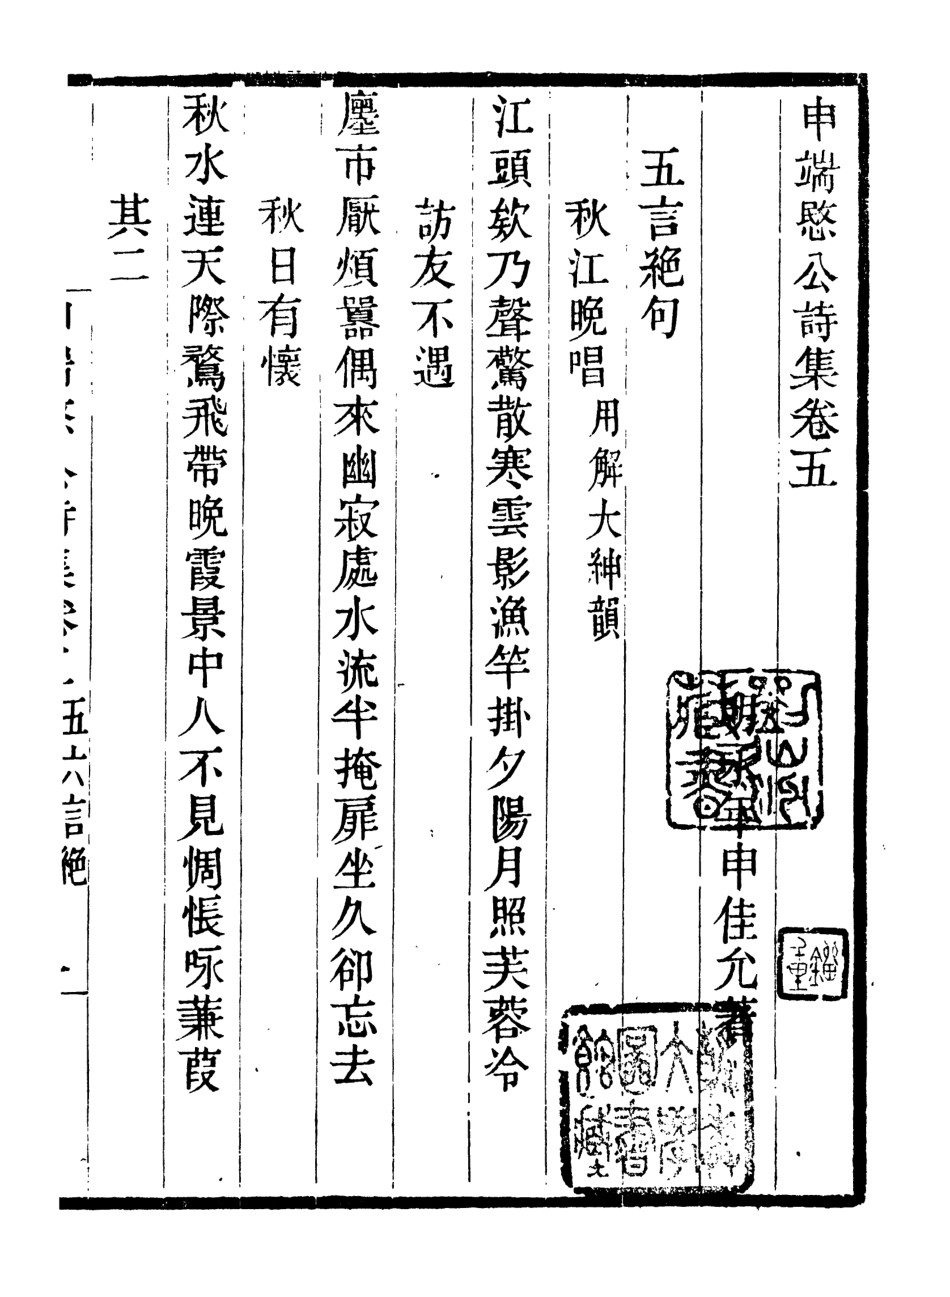 申端愍公詩集卷五
明永年申佳允著
五言絕句
秋江晚唱 用解大紳韻
江頭欸乃聲驚散寒雲影漁竿掛夕陽月照芙蓉冷
訪友不遇
廛市厭煩囂偶來幽寂處水流半掩扉坐久卻忘去
秋日有懷
秋水連天際鶩飛帶晚霞景中人不見惆悵咏蒹葭
其二
五六言絕 一